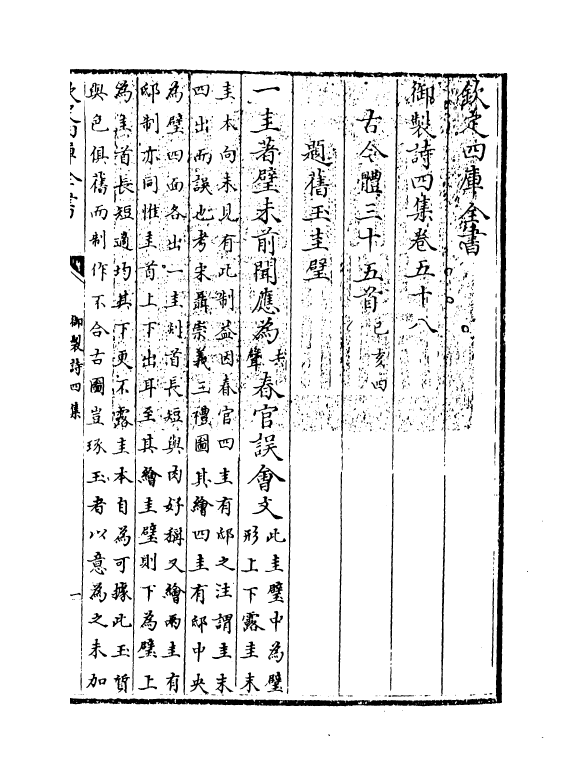 欽定四庫全書
御製詩四集卷五十八
古今體三十五首己亥四
題舊玉圭璧
一圭著璧未前聞應為去聲春官誤會文此圭璧中為璧
形上下露圭末
圭本向未見有此制葢因春官四圭有邸之注謂圭末
四出而誤也考宋聶崇義三禮圖其繪四圭有邸中央
為璧四面各出一圭剡首長短與肉好稱又繪兩圭有
邸制亦同惟圭首上下出耳至其繪圭璧則下為璧上
為圭首長短適均其下更不露圭本自為可據此玉質
與色俱舊而制作不合古圖豈琢玉者以意為之未加
欽定四庫全書
御製詩四集
一